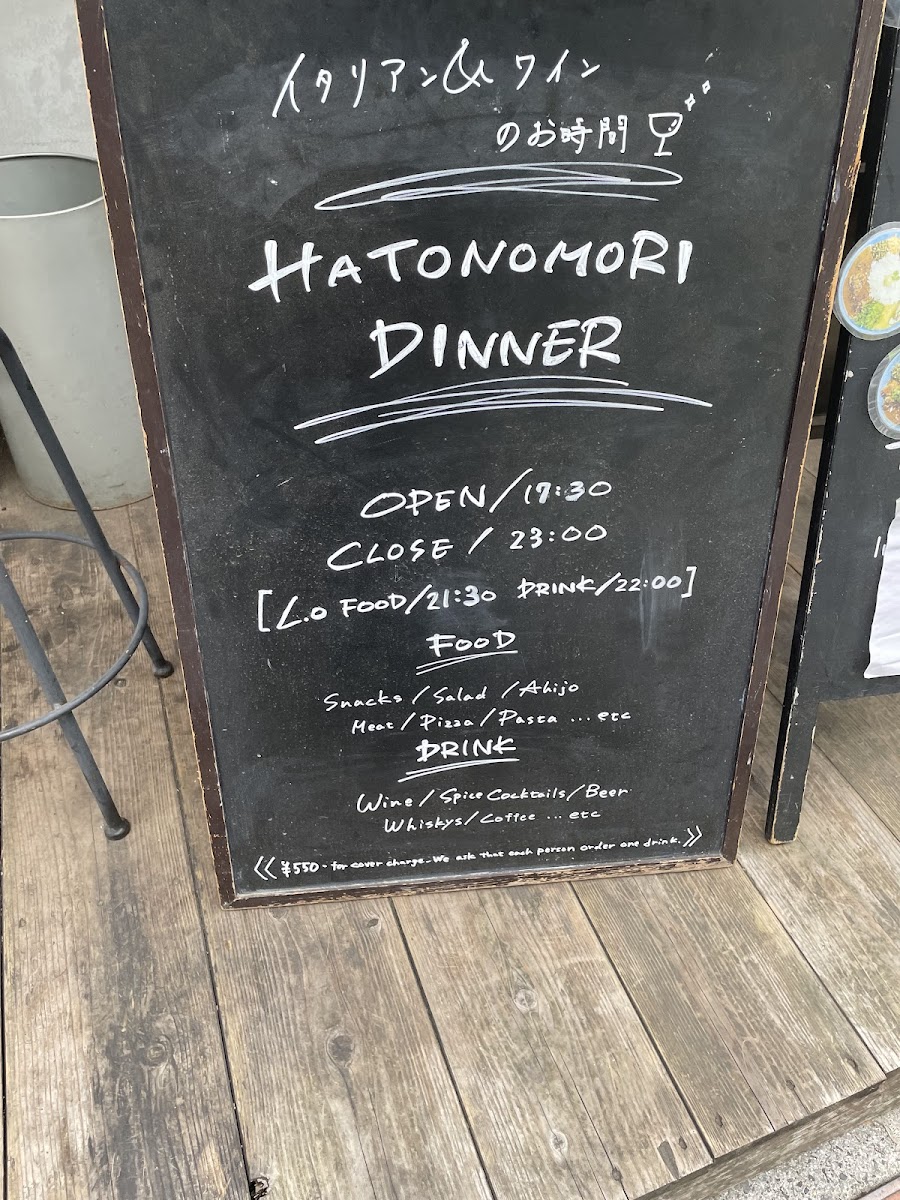 イタリアン& ワイン
のお時間
HATONOMORI
DINNER
OPEN/17:30
CLOSE/23:00
[L.O FOOD/21:30 DRINK/22:00]
FOOD
Snacks/Salad/Ahijo
Meat/Pizza/Pasta...etc
DRINK
Wine/Spice Cocktails/Beer
Whiskys/Coffee...etc
《¥550- for cover charge. We ask that each person order one drink.》